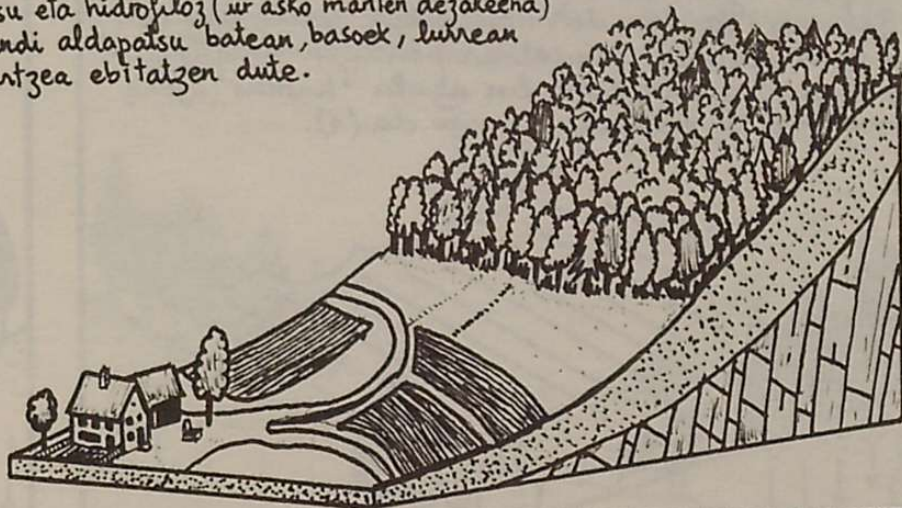 su eta hidrofiloz (ur asko manten dezakeena)
ndi aldapatsu batean, basoek, lurrean
rtzea ebitatzen dute.